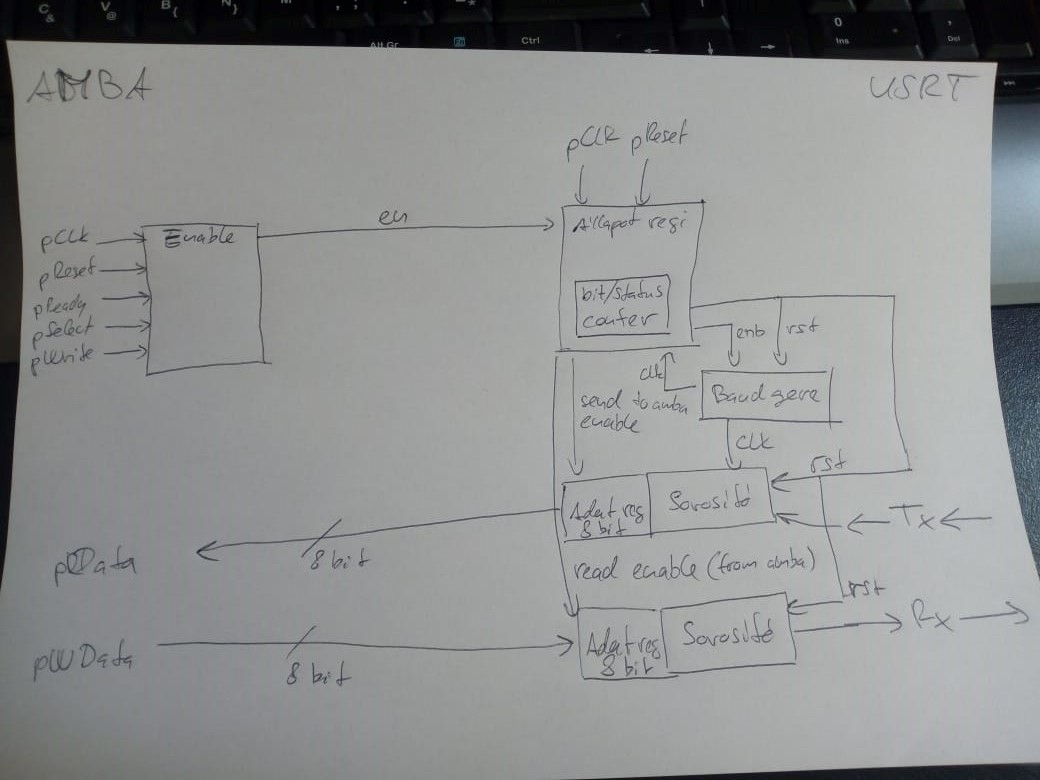 AMBA
USRT
pClk pReset
en
Enable
pClk
pReset
pReady
pSelect
pWrite
Állapot regi
bit/status
conter
enb
rst
clk
Baud gene
send to amba
enable
clk
rst
Adat reg
8 bit
Sorosító
Tx
pRData
8 bit
read enable (from amba)
rst
Rx
pWData
8 bit
Adat reg
8 bit
Sorosító